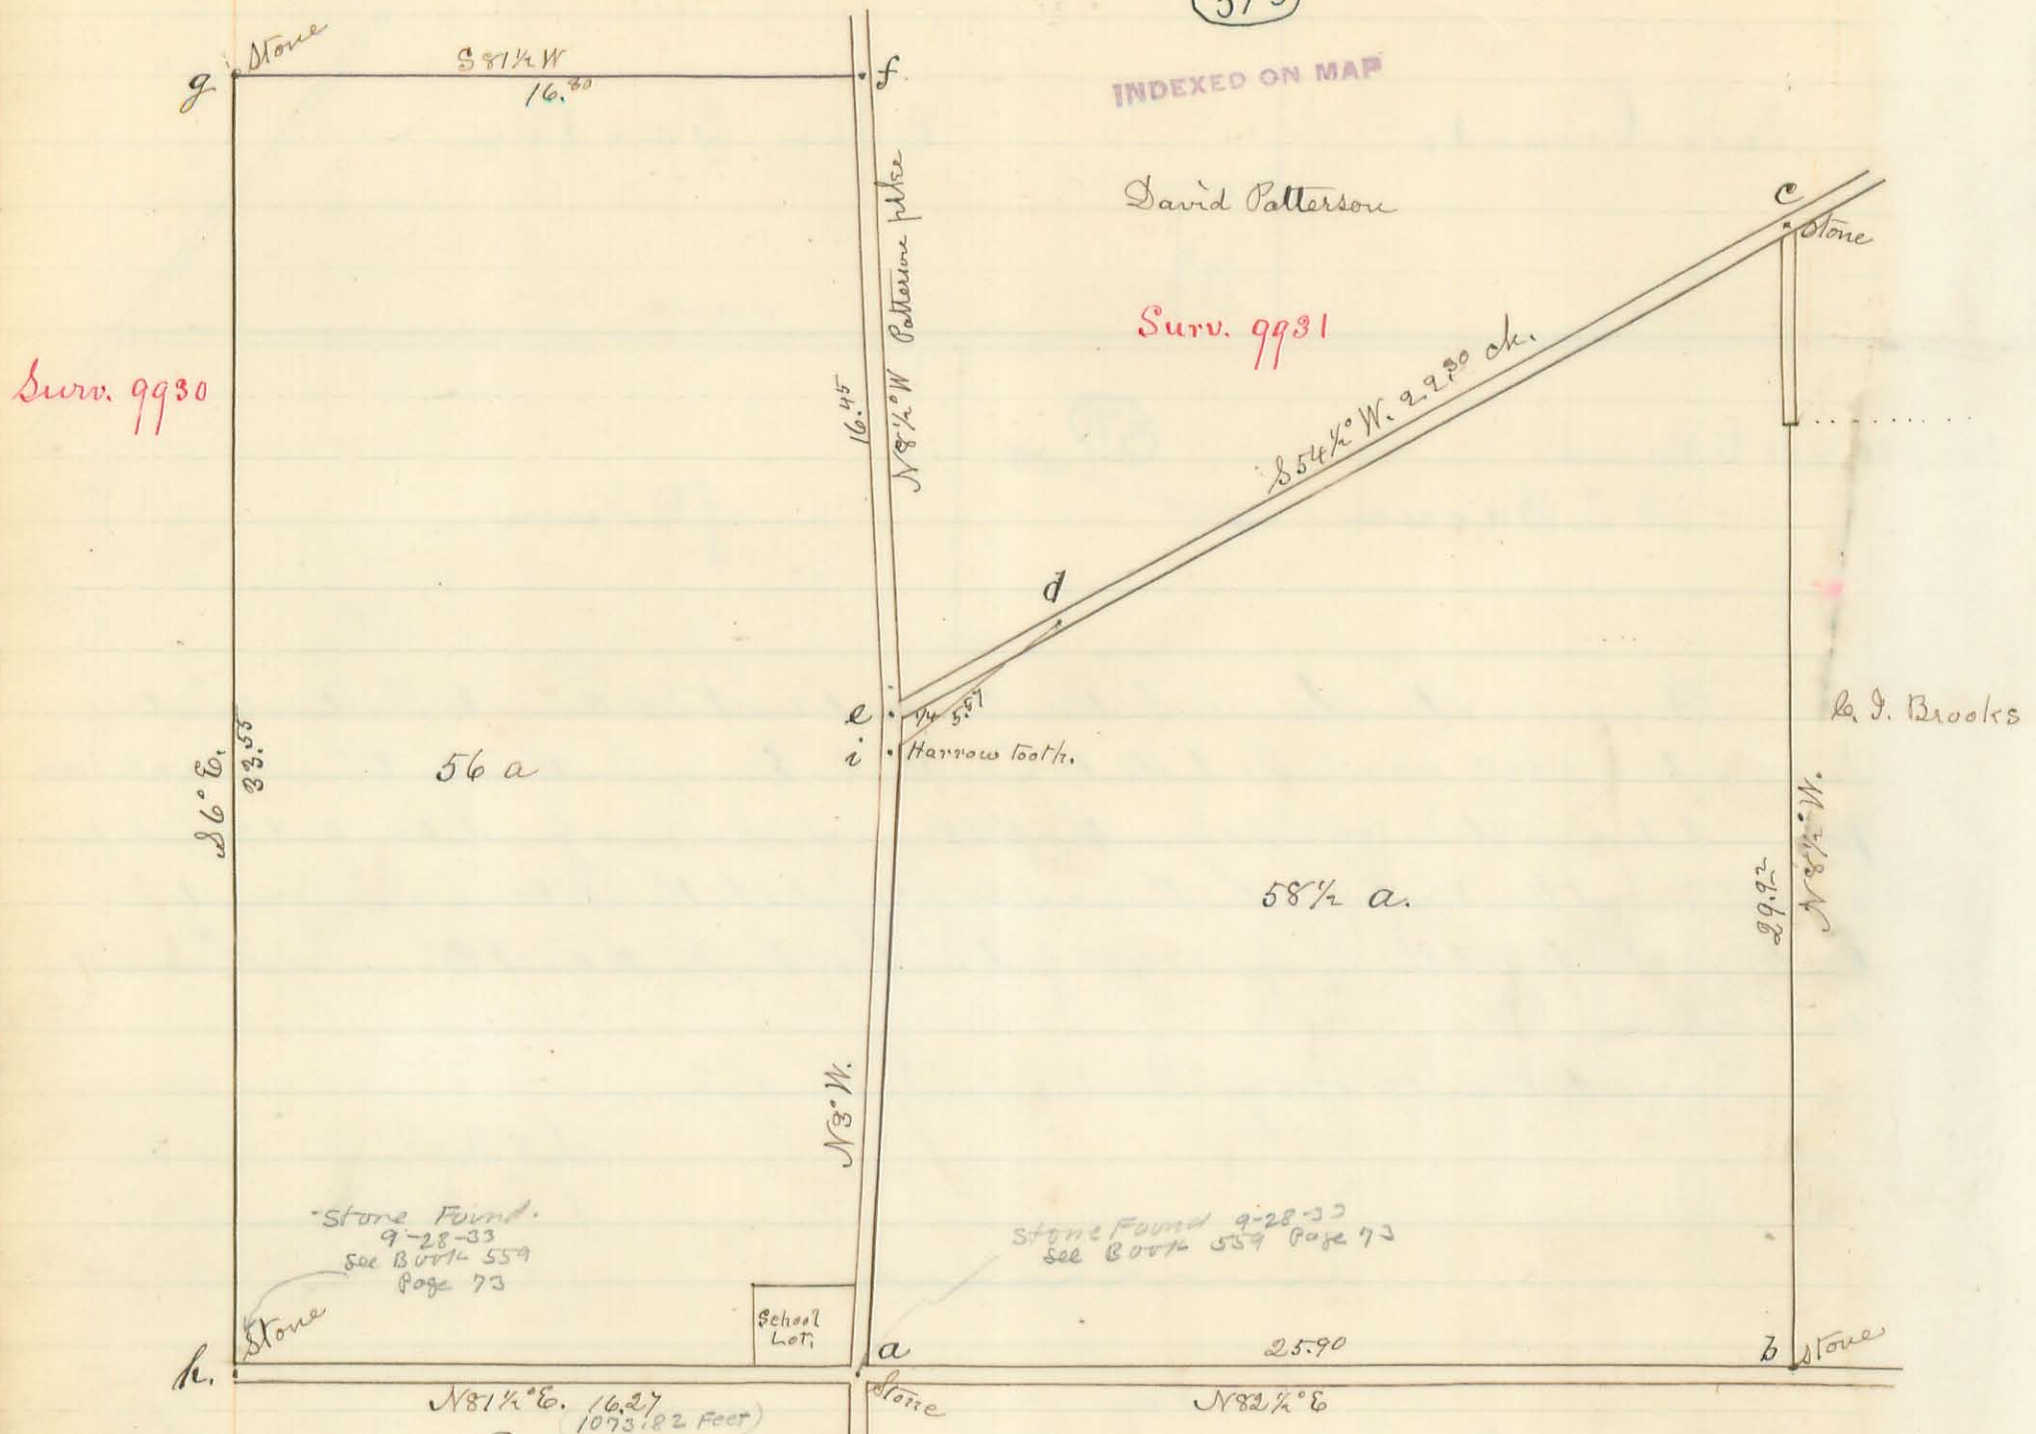 Stone
g
S 81½ W
16.80
f
INDEXED ON MAP
David Patterson
c
Stone
Surv. 9931
Surv. 9930
S 54½° W. 22.30 ch.
N 8½° W Patterson pike
16.45
d
e
5.57
i
Harrow tooth.
C. I. Brooks
S 6° E.
33.55
56 a
58½ a.
29.92
N 8½° W.
N 3° W.
Stone Found.
9-28-33
See Book 559
Page 73
Stone Found 9-28-33
See Book 559 Page 73
Stone
h.
School
Lot.
a
25.90
b
stone
Stone
N 81½° E. 16.27
(1073.82 Feet)
N 82½° E